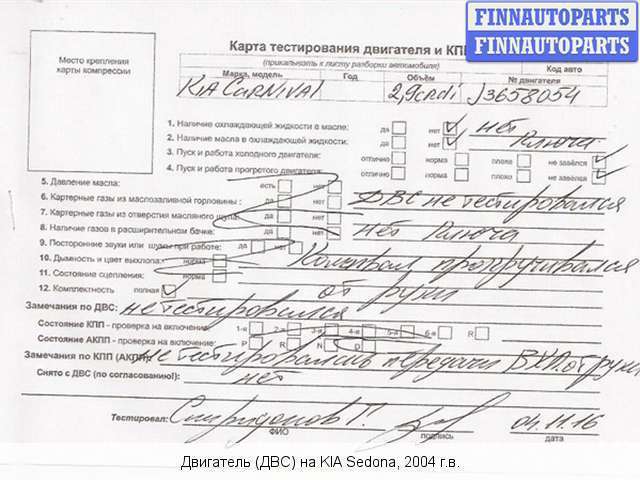 FINNAUTOPARTS
FINNAUTOPARTS
Место крепления
карты компрессии
Карта тестирования двигателя и КПП
(прикалывать к листу разборки автомобиля)
Марка, модель Год Объём № двигателя Код авто
KIA CARNIVAL 2,9crdi J3658054
1. Наличие охлаждающей жидкости в масле: да нет нет
2. Наличие масла в охлаждающей жидкости: да нет ключа
3. Пуск и работа холодного двигателя: отлично норма плохо не завёлся
4. Пуск и работа прогретого двигателя: отлично норма плохо не завёлся
5. Давление масла: есть нет
6. Картерные газы из маслозаливной горловины : да нет ДВС не тестировался
7. Картерные газы из отверстия масляного щупа: да нет
8. Наличие газов в расширительном бачке: да нет нет ключа
9. Посторонние звуки или шумы при работе: да нет
10. Дымность и цвет выхлопа: норма Коленвал прокручивался
11. Состояние сцепления: норма
12. Комплектность полная от руки
Замечания по ДВС: не тестировался
Состояние КПП - проверка на включение: 1-я 2-я 3-я 4-я 5-я 6-я R
Состояние АКПП - проверка на включение: P R N D
Замечания по КПП (АКПП): не тестировались передачи ВКЛ. от руки
Снято с ДВС (по согласованию!): нет
Тестировал: Спиридонов Г. 04.11.16
ФИО подпись дата
Двигатель (ДВС) на KIA Sedona, 2004 г.в.